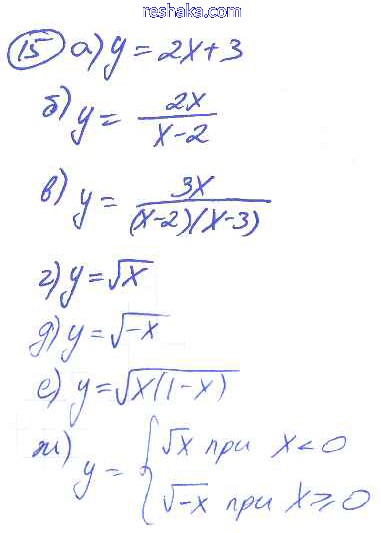 reshaka.com
15 а) y = 2x+3
б) y = 2x / (x-2)
в) y = 3x / ((x-2)(x-3))
г) y = √x
д) y = √(-x)
е) y = √(x(1-x))
ж) y = { √x при x < 0
√-x при x ⩾ 0